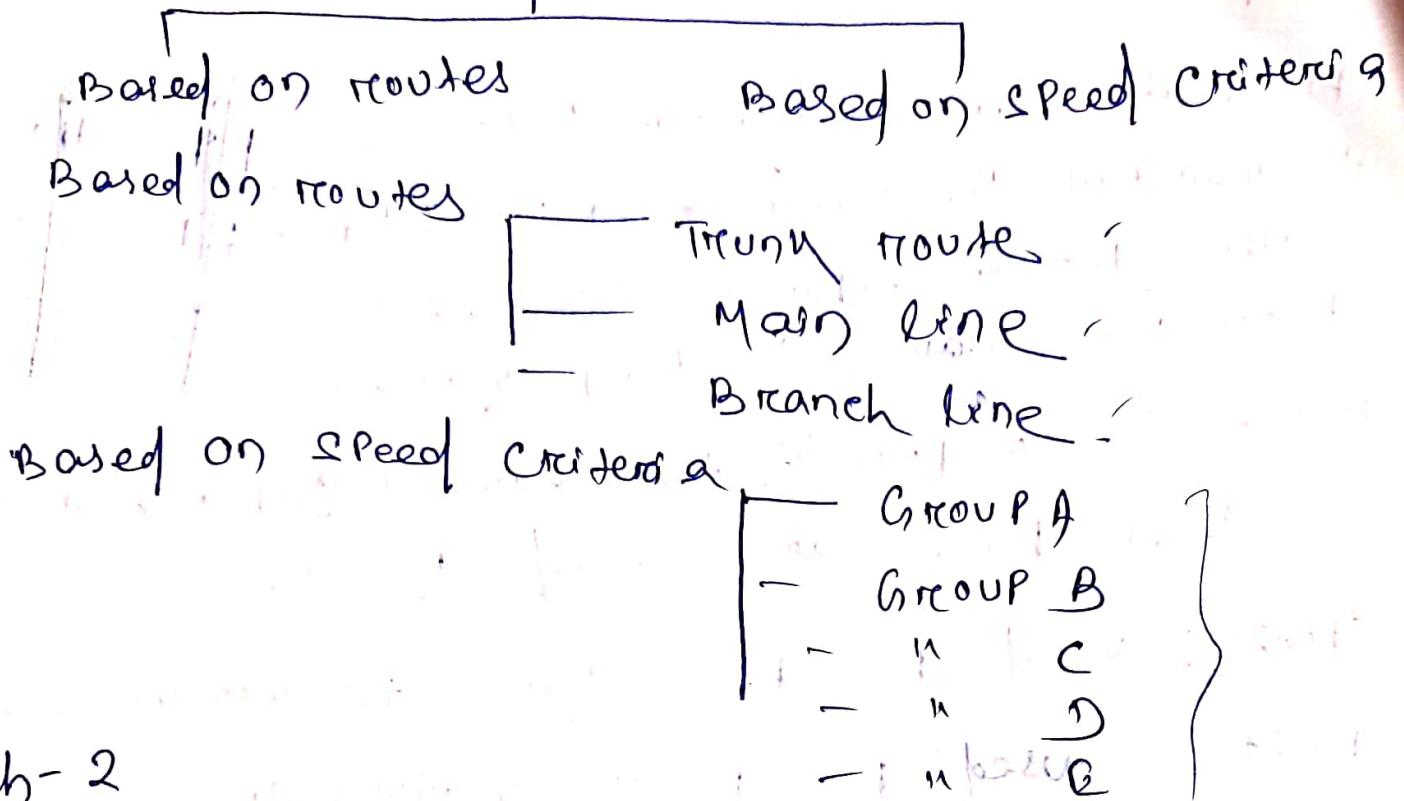 Based on routes Based on speed Criteria
Based on routes
Trunk route
Main line
Branch line
Based on speed Criteria
Group A
Group B
" C
" D
" E
h-2